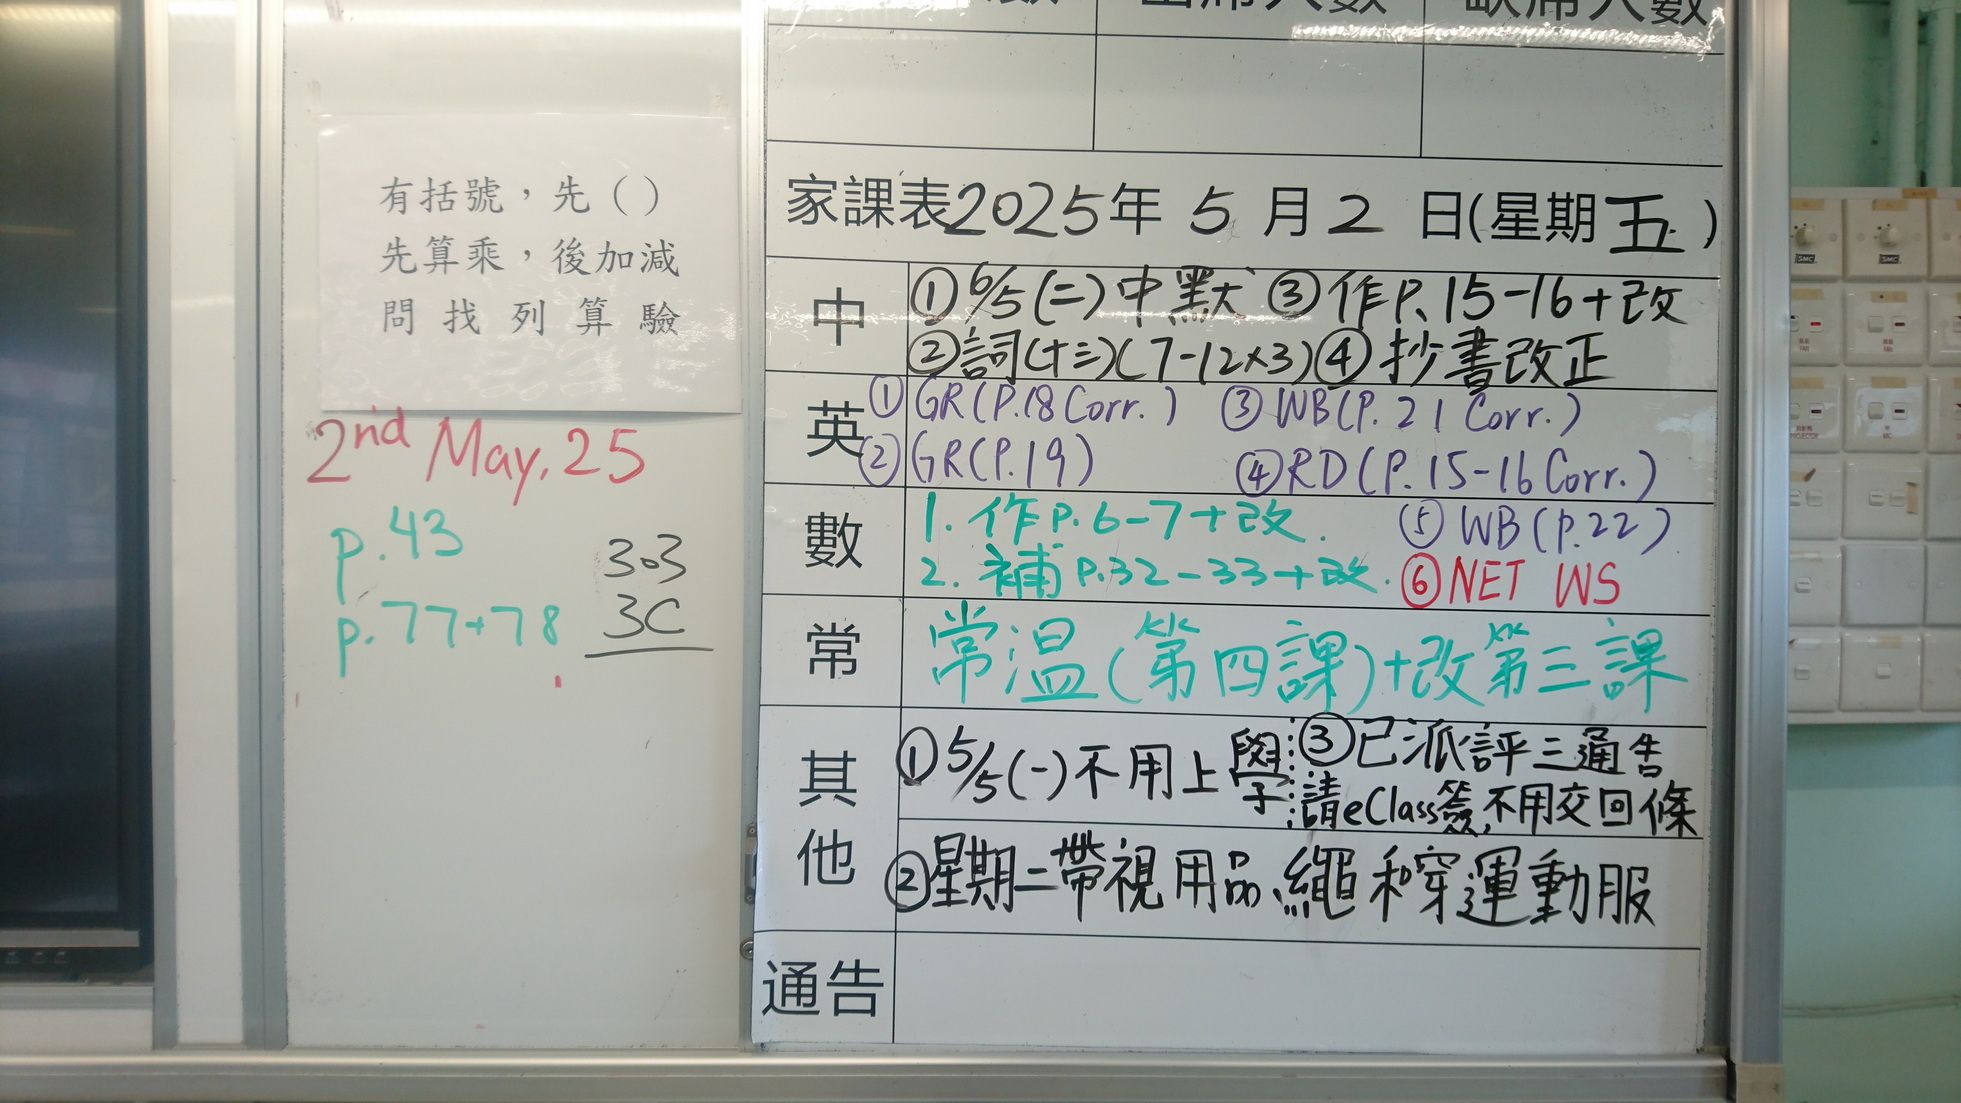 出席人數
有括號，先（ ）
先算乘，後加減
問找列算驗
2nd May, 25
p.43
p.77+78
303
3C
家課表2025年5月2日(星期五)
中
①6/5(二)中默 ③作P.15-16+改
②詞(十三)(7-12x3)④抄書改正
英
①GR(P.18 Corr.) ③WB(P.21 Corr.)
②GR(P.19) ④RD(P.15-16 Corr.)
數
1. 作P.6-7+改. ⑤WB(p.22)
2. 補P.32-33+改. ⑥NET WS
常
常温(第四課)+改第三課
其他
①5/5(一)不用上學 ③已派評三通告
請eClass簽,不用交回條
②星期二帶視用品、繩和穿運動服
通告